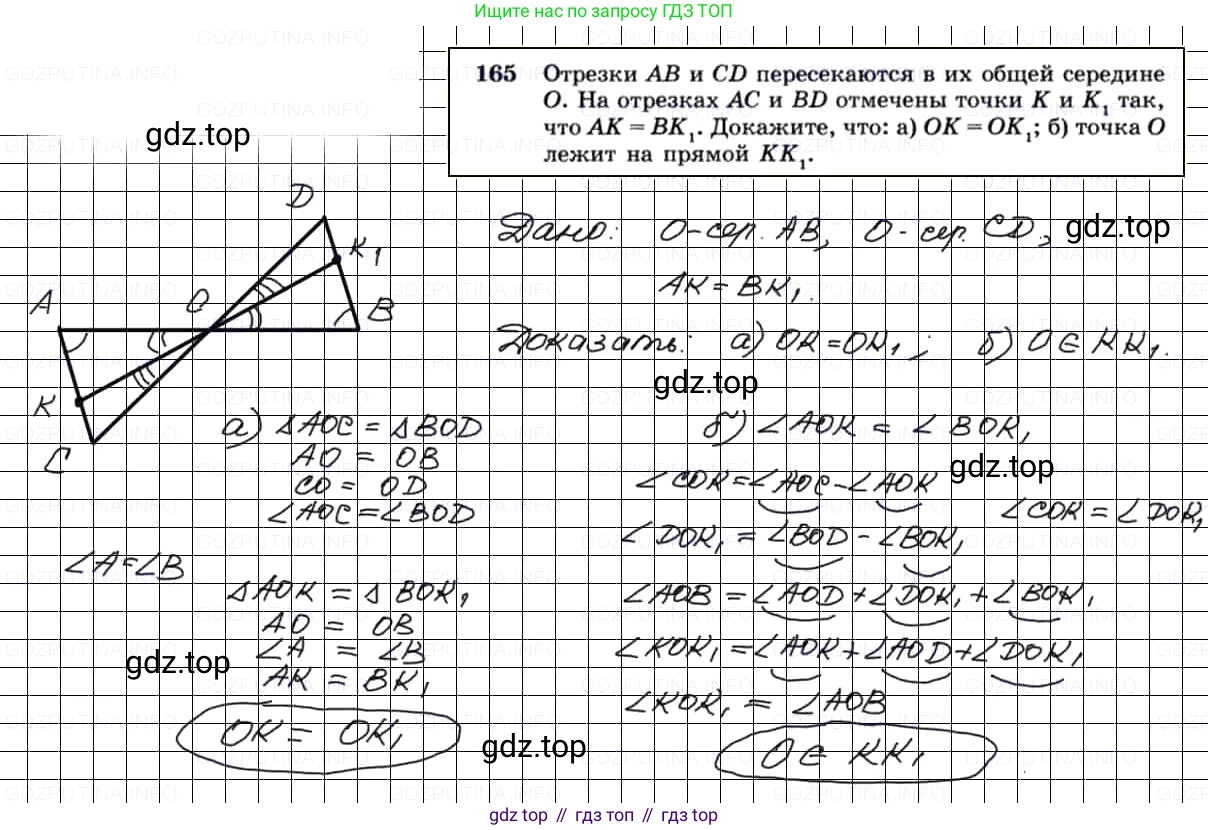 Ищите нас по запросу ГДЗ ТОП
165 Отрезки AB и CD пересекаются в их общей середине
O. На отрезках AC и BD отмечены точки K и K₁ так,
что AK = BK₁. Докажите, что: а) OK = OK₁; б) точка O
лежит на прямой KK₁.
gdz.top
D
K₁
A
O
B
K
C
Дано: O-сер. AB, O-сер. CD,
gdz.top
AK = BK₁.
Доказать: а) OK = OK₁; б) O ∈ KK₁.
gdz.top
а) △AOC = △BOD
AO = OB
CO = OD
∠AOC = ∠BOD
∠A = ∠B
△AOK = △BOK₁
AO = OB
∠A = ∠B
AK = BK₁
gdz.top
OK = OK₁
б) ∠AOK = ∠BOK₁
gdz.top
∠COK = ∠AOC - ∠AOK
∠COK = ∠DOK₁
∠DOK₁ = ∠BOD - ∠BOK₁
∠AOB = ∠AOD + ∠DOK₁ + ∠BOK₁
∠KOK₁ = ∠AOK + ∠AOD + ∠DOK₁
∠KOK₁ = ∠AOB
gdz.top
O ∈ KK₁
gdz top // гдз топ // gdz top
GDZPUTINA.INFO